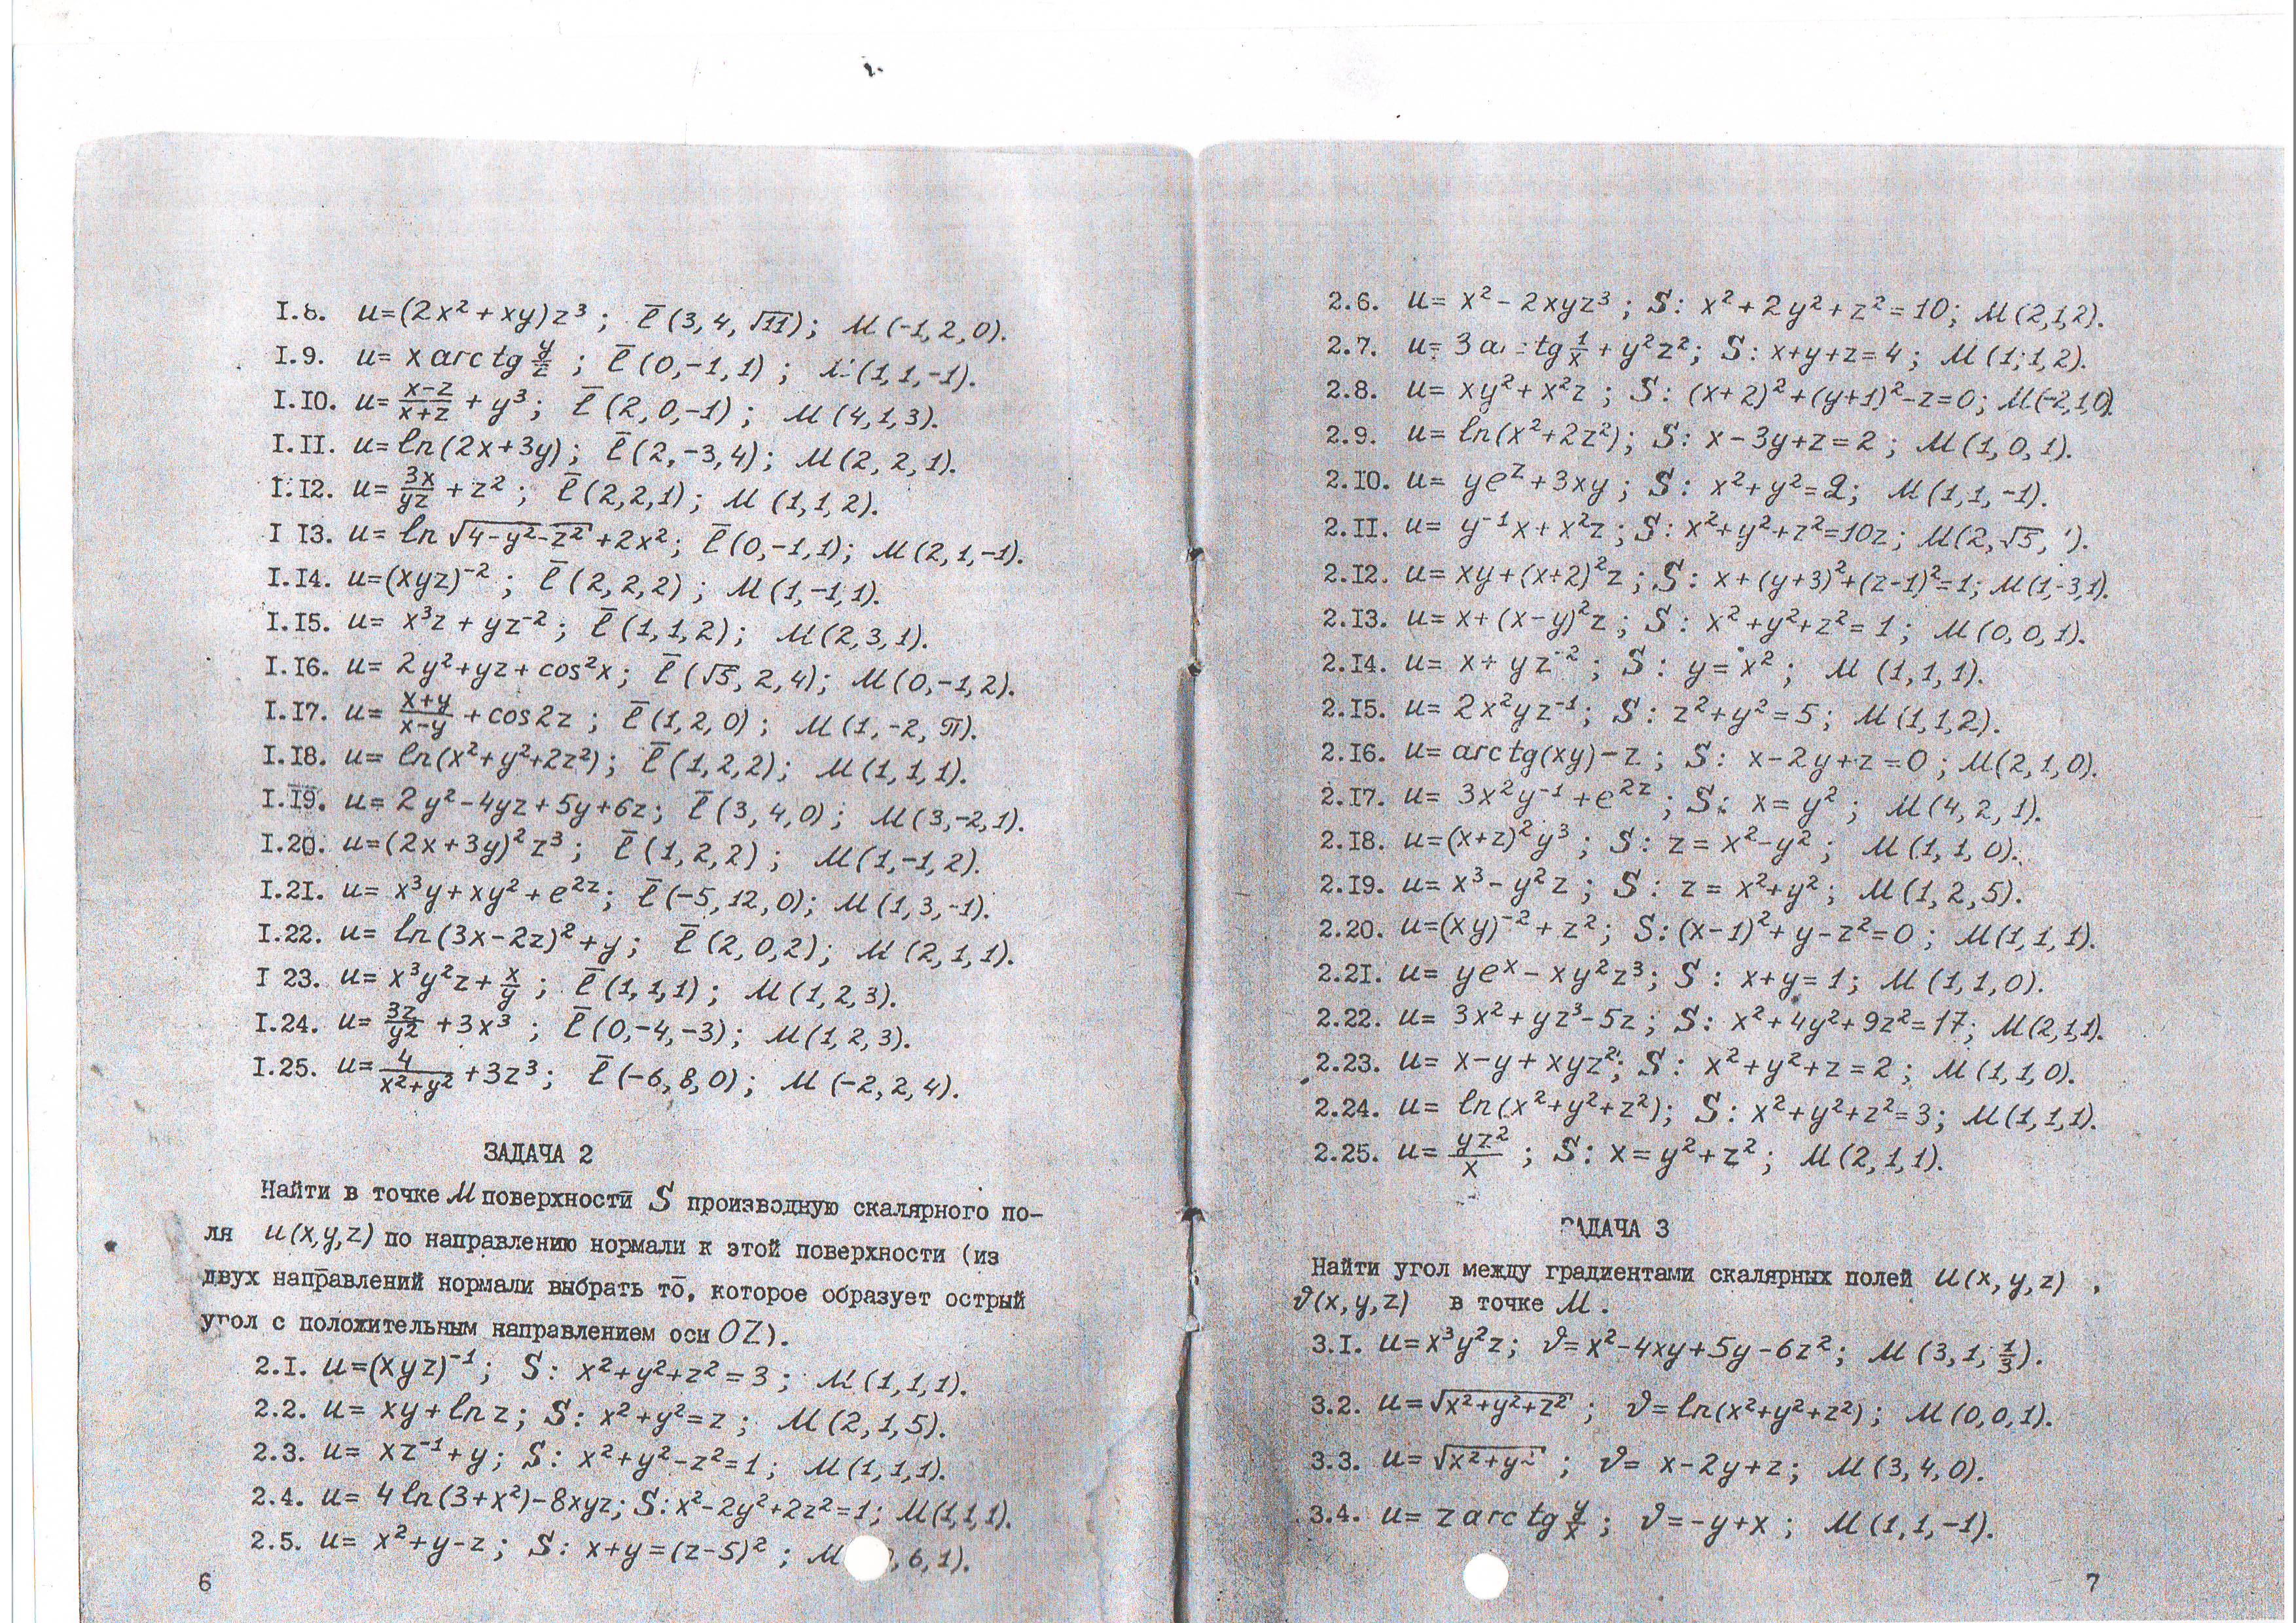 I.8. u=(2x²+xy)z³; l̄(3,4,√11); M(-1,2,0).
I.9. u= x arctg y/z; l̄(0,-1,1); M(1,1,-1).
I.10. u= (x-z)/(x+z) + y³; l̄(2,0,-1); M(4,1,3).
I.II. u= ln(2x+3y); l̄(2,-3,4); M(2,2,1).
I.I2. u= 3x/yz + z²; l̄(2,2,1); M(1,1,2).
I I3. u= ln√(4-y²-z²)+2x²; l̄(0,-1,1); M(2,1,-1).
I.I4. u=(xyz)⁻²; l̄(2,2,2); M(1,-1,1).
I.I5. u= x³z+yz⁻²; l̄(1,1,2); M(2,3,1).
I.I6. u= 2y²+yz+cos²x; l̄(√5,2,4); M(0,-1,2).
I.I7. u= (x+y)/(x-y) + cos2z; l̄(1,2,0); M(1,-2,π).
I.I8. u= ln(x²+y²+2z²); l̄(1,2,2); M(1,1,1).
I.I9. u= 2y²-4yz+5y+6z; l̄(3,4,0); M(3,-2,1).
I.20. u=(2x+3y)²z³; l̄(1,2,2); M(1,-1,2).
I.2I. u= x³y+xy²+e²ᶻ; l̄(-5,12,0); M(1,3,-1).
I.22. u= ln(3x-2z)²+y; l̄(2,0,2); M(2,1,1).
I 23. u= x³y²z+x/y; l̄(1,1,1); M(1,2,3).
I.24. u= 3z/y² +3x³; l̄(0,-4,-3); M(1,2,3).
I.25. u= 4/(x²+y²) +3z³; l̄(-6,8,0); M(-2,2,4).
ЗАДАЧА 2
Найти в точке M поверхности S производную скалярного по-
ля u(x,y,z) по направлению нормали к этой поверхности (из
двух направлений нормали выбрать то, которое образует острый
угол с положительным направлением оси OZ).
2.I. u=(xyz)⁻¹; S: x²+y²+z²=3; M(1,1,1).
2.2. u= xy+ln z; S: x²+y²=z; M(2,1,5).
2.3. u= xz⁻¹+y; S: x²+y²-z²=1; M(1,1,1).
2.4. u= 4ln(3+x²)-8xyz; S: x²-2y²+2z²=1; M(1,1,1).
2.5. u= x²+y-z; S: x+y=(z-5)²; M ,6,1).
6
2.6. u= x²-2xyz³; S: x²+2y²+z²=10; M(2,1,2).
2.7. u= 3a tg 1/x + y²z²; S: x+y+z=4; M(1;1,2).
2.8. u= xy²+x²z; S: (x+2)²+(y+1)²-z=0; M(-2,1,0).
2.9. u= ln(x²+2z²); S: x-3y+z=2; M(1,0,1).
2.I0. u= yeᶻ+3xy; S: x²+y²=2; M(1,1,-1).
2.II. u= y⁻¹x+x²z; S: x²+y²+z²=10z; M(2,√5, ).
2.I2. u= xy+(x+2)²z; S: x+(y+3)²+(z-1)²=1; M(1,-3,1).
2.I3. u= x+(x-y)²z; S: x²+y²+z²=1; M(0,0,1).
2.I4. u= x+yz⁻²; S: y=x²; M(1,1,1).
2.I5. u= 2x²yz⁻¹; S: z²+y²=5; M(1,1,2).
2.I6. u= arctg(xy)-z; S: x-2y+z=0; M(2,1,0).
2.I7. u= 3x²y⁻¹+e²ᶻ; S: x=y²; M(4,2,1).
2.I8. u=(x+z)²y³; S: z=x²-y²; M(1,1,0).
2.I9. u= x³-y²z; S: z=x²+y²; M(1,2,5).
2.20. u=(xy)⁻²+z²; S: (x-1)²+y-z²=0; M(1,1,1).
2.2I. u= yeˣ-xy²z³; S: x+y=1; M(1,1,0).
2.22. u= 3x²+yz³-5z; S: x²+4y²+9z²=17; M(2,1,1).
2.23. u= x-y+xyz²; S: x²+y²+z=2; M(1,1,0).
2.24. u= ln(x²+y²+z²); S: x²+y²+z²=3; M(1,1,1).
2.25. u= yz²/x; S: x=y²+z²; M(2,1,1).
ЗАДАЧА 3
Найти угол между градиентами скалярных полей u(x,y,z),
ϑ(x,y,z) в точке M.
3.I. u=x³y²z; ϑ=x²-4xy+5y-6z²; M(3,1,1/3).
3.2. u=√(x²+y²+z²); ϑ=ln(x²+y²+z²); M(0,0,1).
3.3. u=√(x²+y²); ϑ= x-2y+z; M(3,4,0).
3.4. u= z arctg y/x; ϑ=-y+x; M(1,1,-1).
7